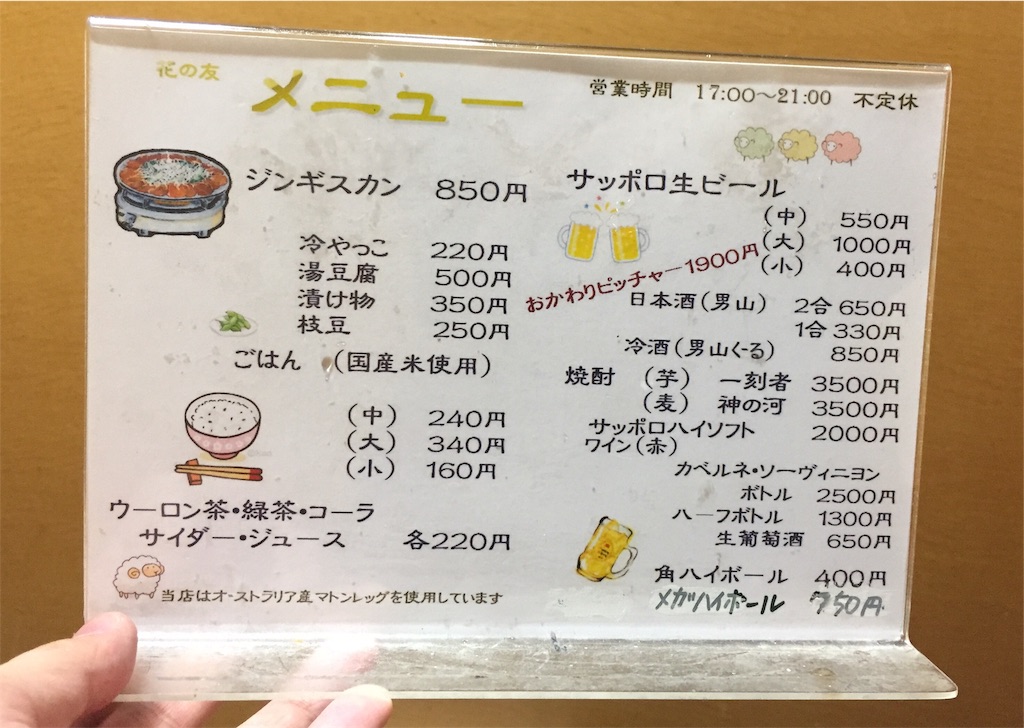 花の友
メニュー
営業時間 17:00~21:00 不定休
ジンギスカン 850円
冷やっこ 220円
湯豆腐 500円
漬け物 350円
枝豆 250円
ごはん (国産米使用)
(中) 240円
(大) 340円
(小) 160円
ウーロン茶・緑茶・コーラ
サイダー・ジュース 各220円
当店はオーストラリア産マトンレッグを使用しています
サッポロ生ビール
(中) 550円
(大) 1000円
(小) 400円
おかわりピッチャー1900円
日本酒(男山) 2合 650円
1合 330円
冷酒(男山ぐーる) 850円
焼酎 (芋) 一刻者 3500円
(麦) 神の河 3500円
サッポロハイソフト 2000円
ワイン(赤)
カベルネ・ソーヴィニヨン
ボトル 2500円
ハーフボトル 1300円
生葡萄酒 650円
角ハイボール 400円
メガハイボール 750円